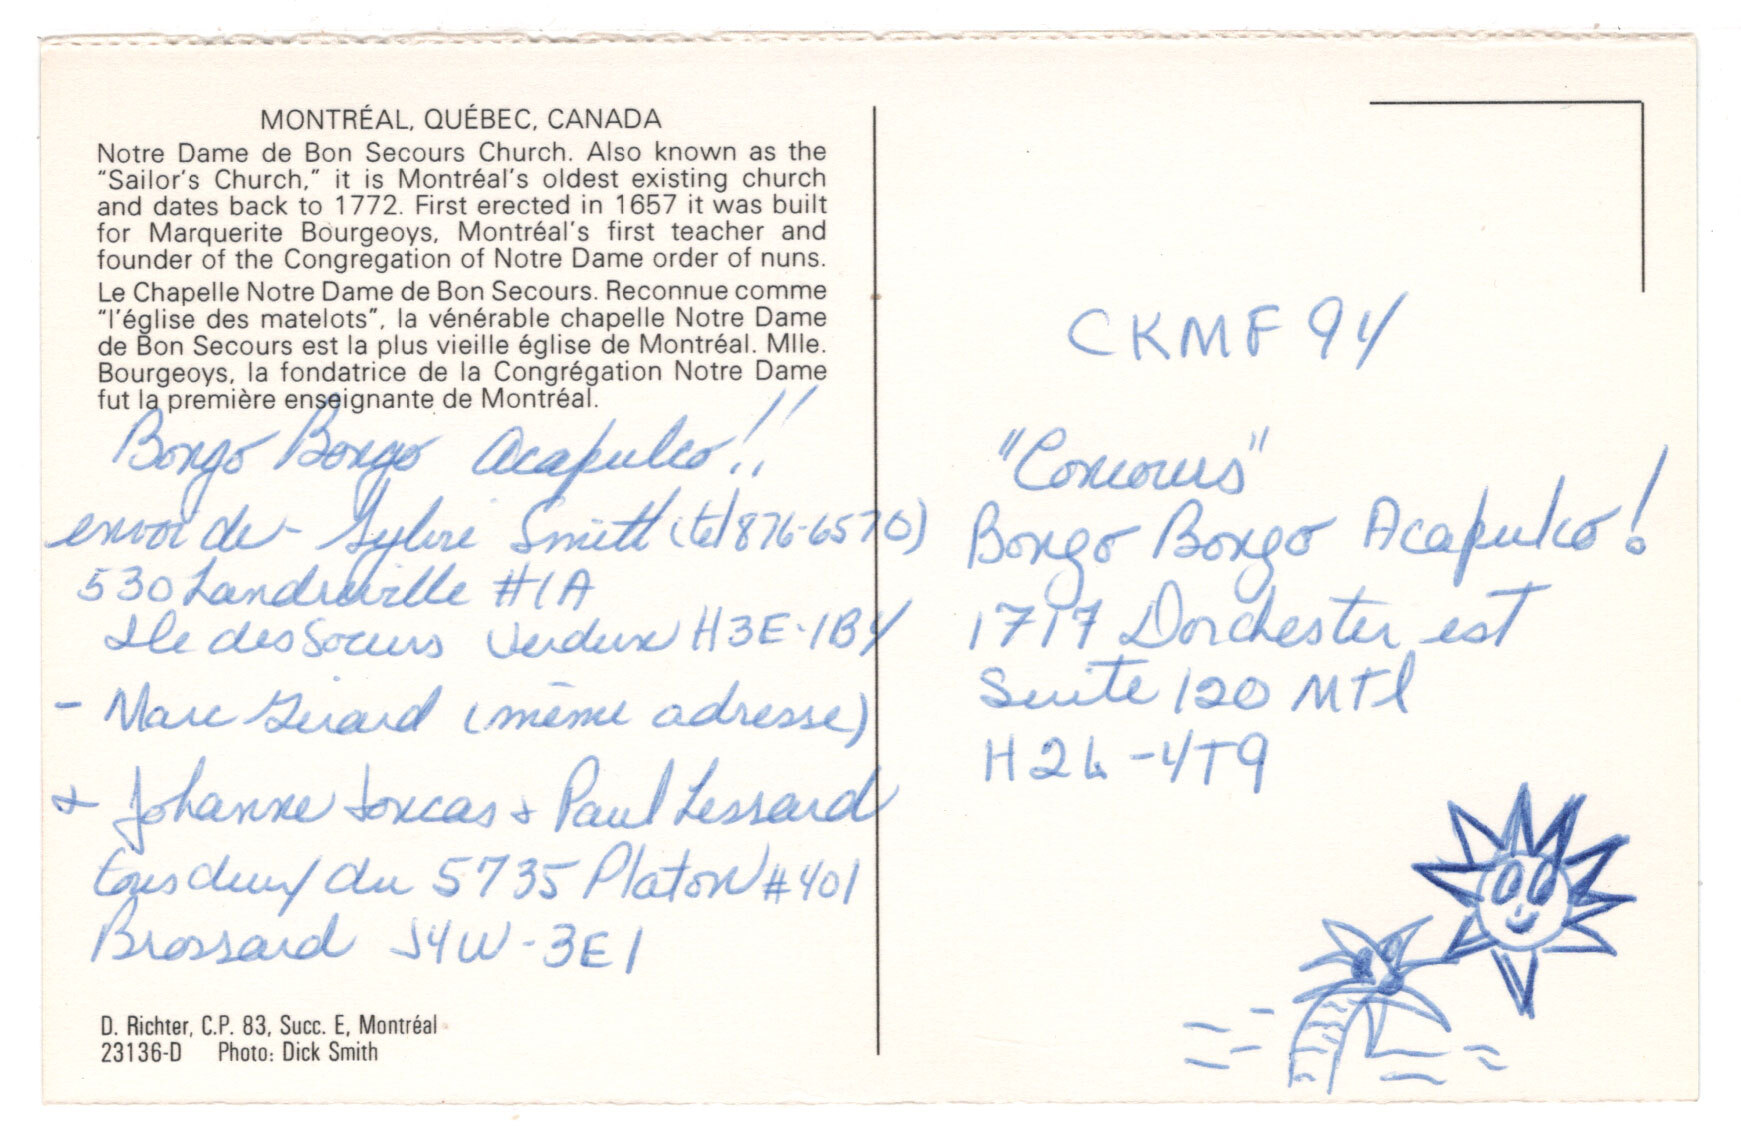 MONTRÉAL, QUÉBEC, CANADA
Notre Dame de Bon Secours Church. Also known as the
"Sailor's Church," it is Montréal's oldest existing church
and dates back to 1772. First erected in 1657 it was built
for Marquerite Bourgeoys, Montréal's first teacher and
founder of the Congregation of Notre Dame order of nuns.
Le Chapelle Notre Dame de Bon Secours. Reconnue comme
"l'église des matelots", la vénérable chapelle Notre Dame
de Bon Secours est la plus vieille église de Montréal. Mlle.
Bourgeoys, la fondatrice de la Congrégation Notre Dame
fut la première enseignante de Montréal.
Bongo Bongo Acapulco!!
envoi de - Sylvie Smith (tel 876-6570)
530 Landreville #1A
Ile des Soeurs Verdun H3E-1B4
- Marc Girard (même adresse)
+ Johanne Joncas + Paul Lessard
tous deux du 5735 Platon #401
Brossard J4W-3E1
D. Richter, C.P. 83, Succ. E, Montréal
23136-D Photo: Dick Smith
CKMF 94
"Concours"
Bongo Bongo Acapulco!
1717 Dorchester est
Suite 120 MTl
H2L-4T9